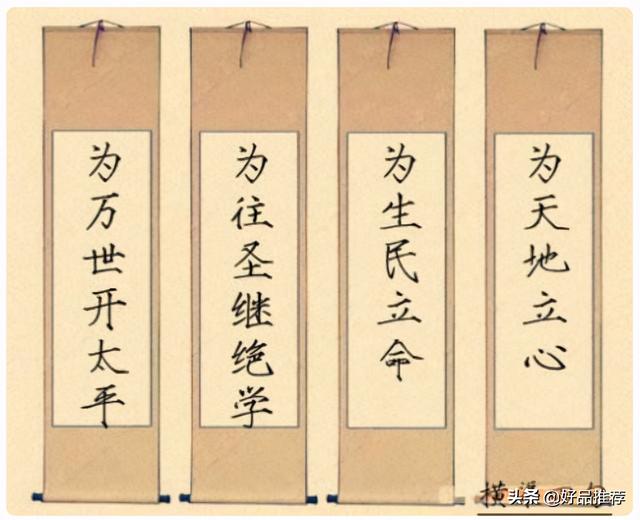 为天地立心
为生民立命
为往圣继绝学
为万世开太平
横渠
头条 @好品推荐